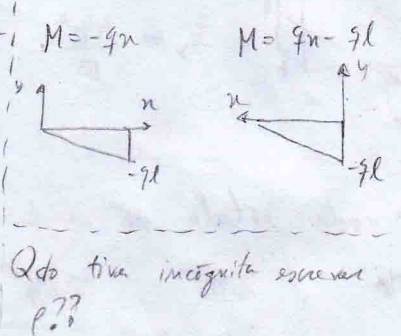 M = -qx
M = qx - ql
y
x
-ql
x
y
-ql
Qdo tiver incógnita escrever
p??